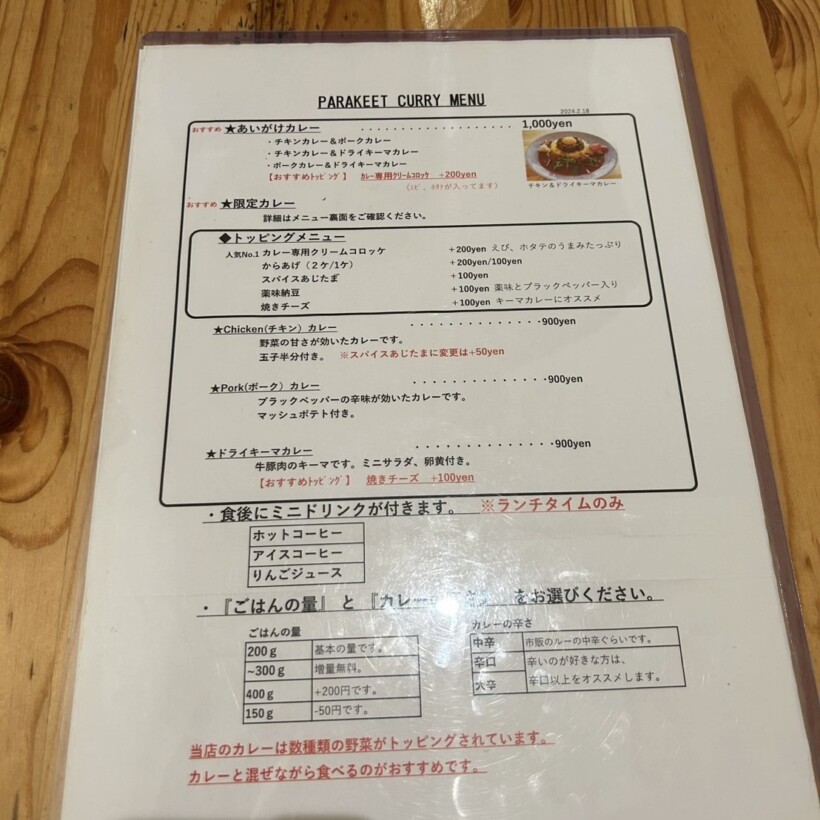 PARAKEET CURRY MENU
2024.2.18
おすすめ ★あいがけカレー ・・・・・・・・・・・・・・・・・・・ 1,000yen
・チキンカレー＆ポークカレー
・チキンカレー＆ドライキーマカレー
・ポークカレー＆ドライキーマカレー
【おすすめﾄｯﾋﾟﾝｸﾞ】 ｶﾚｰ専用ｸﾘｰﾑｺﾛｯｹ +200yen
（ｴﾋﾞ、ﾎﾀﾃが入ってます）
チキン＆ドライキーマカレー
おすすめ ★限定カレー
詳細はメニュー裏面をご確認ください。
◆トッピングメニュー
人気No.1 カレー専用クリームコロッケ +200yen えび、ホタテのうまみたっぷり
からあげ（2ケ/1ケ） +200yen/100yen
スパイスあじたま +100yen
薬味納豆 +100yen 薬味とブラックペッパー入り
焼きチーズ +100yen キーマカレーにオススメ
★Chicken(チキン）カレー ・・・・・・・・・・・・・900yen
野菜の甘さが効いたカレーです。
玉子半分付き。 ※スパイスあじたまに変更は+50yen
★Pork(ポーク）カレー ・・・・・・・・・・・・・900yen
ブラックペッパーの辛味が効いたカレーです。
マッシュポテト付き。
★ドライキーマカレー ・・・・・・・・・・・・・900yen
牛豚肉のキーマです。ミニサラダ、卵黄付き。
【おすすめﾄｯﾋﾟﾝｸﾞ】 焼きチーズ +100yen
・食後にミニドリンクが付きます。 ※ランチタイムのみ
ホットコーヒー
アイスコーヒー
りんごジュース
・『ごはんの量』 と 『カレー をお選びください。
ごはんの量
200ｇ 基本の量です。
~300ｇ 増量無料。
400ｇ +200円です。
150ｇ -50円です。
カレーの辛さ
中辛 市販のルーの中辛ぐらいです。
辛口 辛いのが好きな方は、
大辛 辛口以上をオススメします。
当店のカレーは数種類の野菜がトッピングされています。
カレーと混ぜながら食べるのがおすすめです。